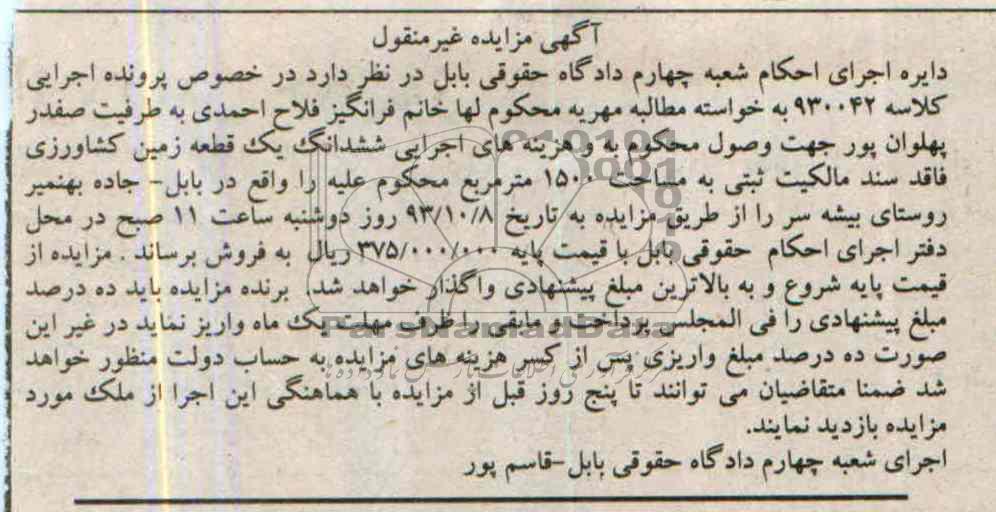 آگهی مزایده غیرمنقول
دایره اجرای احکام شعبه چهارم دادگاه حقوقی بابل در نظر دارد در خصوص پرونده اجرایی
کلاسه ۹۳۰۰۴۲ به خواسته مطالبه مهریه محکوم لها خانم فرانگیز فلاح احمدی به طرفیت صفدر
پهلوان پور جهت وصول محکوم به و هزینه های اجرایی ششدانگ یک قطعه زمین کشاورزی
فاقد سند مالکیت ثبتی به مساحت ۱۵۰۰ مترمربع محکوم علیه را واقع در بابل- جاده بهنمیر
روستای بیشه سر را از طریق مزایده به تاریخ ۹۳/۱۰/۸ روز دوشنبه ساعت ۱۱ صبح در محل
دفتر اجرای احکام حقوقی بابل با قیمت پایه ۳۷۵/۰۰۰/۰۰۰ ریال به فروش برساند . مزایده از
قیمت پایه شروع و به بالاترین مبلغ پیشنهادی واگذار خواهد شد برنده مزایده باید ده درصد
مبلغ پیشنهادی را فی المجلس پرداخت و مابقی را ظرف مهلت یک ماه واریز نماید در غیر این
صورت ده درصد مبلغ واریزی پس از کسر هزینه های مزایده به حساب دولت منظور خواهد
شد ضمنا متقاضیان می توانند تا پنج روز قبل از مزایده با هماهنگی این اجرا از ملک مورد
مزایده بازدید نمایند.
اجرای شعبه چهارم دادگاه حقوقی بابل-قاسم پور
ParsNamadData